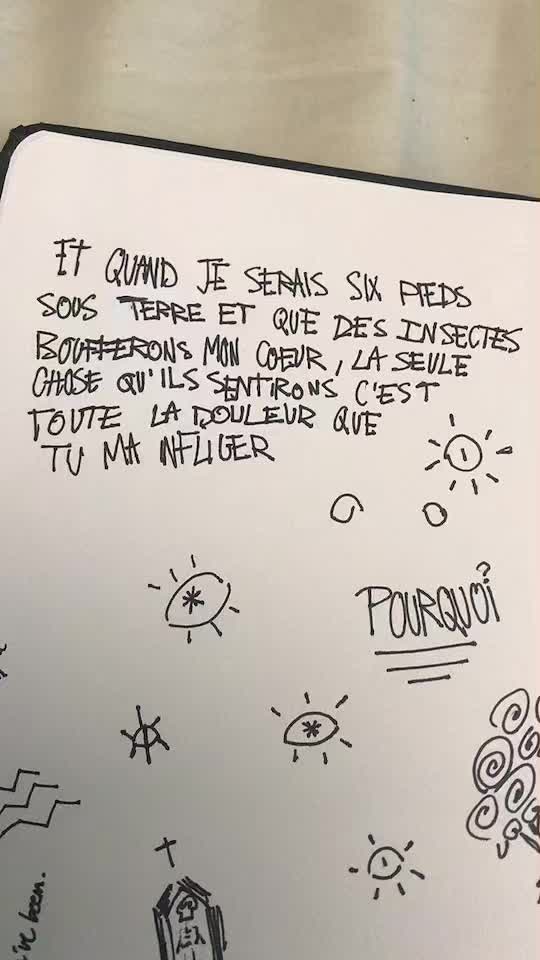 ET QUAND JE SERAIS SIX PIEDS
SOUS TERRE ET QUE DES INSECTES
BOUFFERONS MON COEUR, LA SEULE
CHOSE QU'ILS SENTIRONS C'EST
TOUTE LA DOULEUR QUE
TU MA INFLIGER
POURQUOI?
i've been.